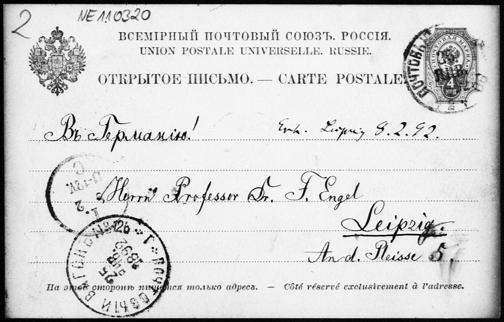 2
NE110320
ВСЕМІРНЫЙ ПОЧТОВЫЙ СОЮЗЪ. РОССІЯ.
UNION POSTALE UNIVERSELLE. RUSSIE.
ОТКРЫТОЕ ПИСЬМО. — CARTE POSTALE.
Въ Германію!
Leipzig 8.2.92.
Herrn Professor Dr. F. Engel
Leipzig.
An d. Pleisse 5.
ПОЧТОВЫЙ ВАГОНЪ
25
1892
На этой сторонѣ пишется только адресъ. — Côté réservé exclusivement à l'adresse.